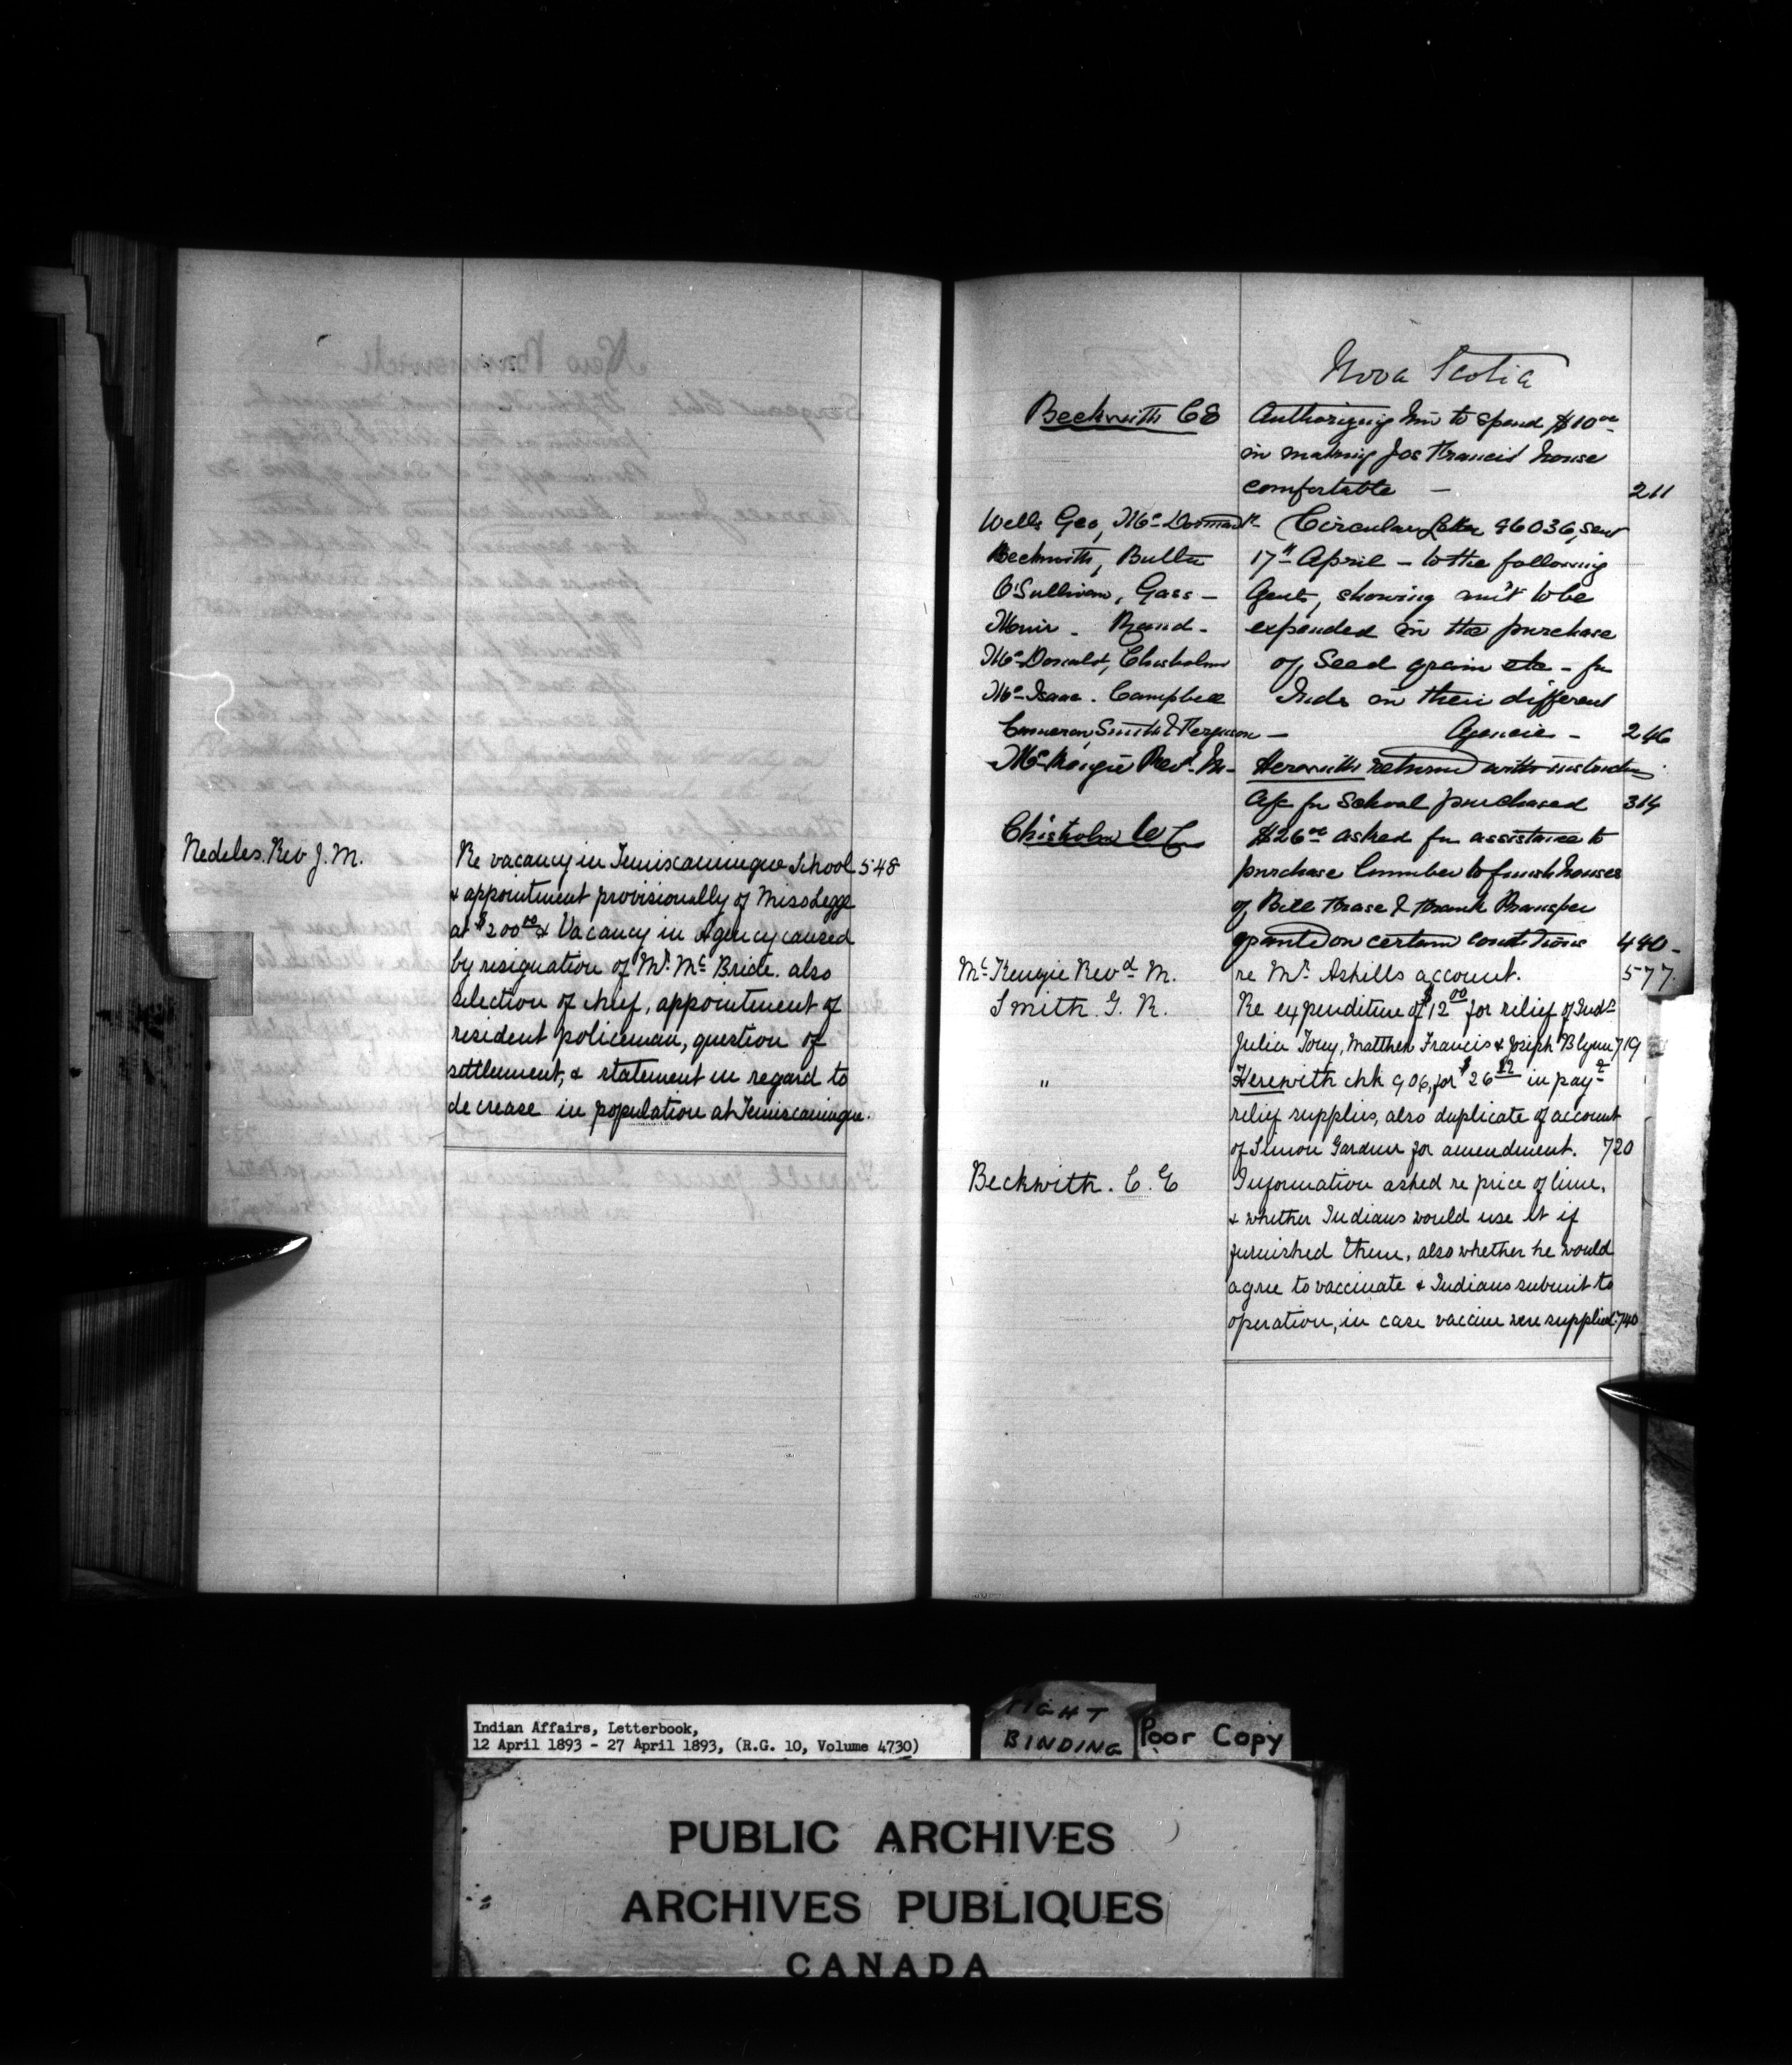 Nedelec. Rev J. M.
Re vacancy in Temiscamingue School 548
& appointment provisionally of Miss Legge
at $200.00 & Vacancy in Agency caused
by resignation of Mr. McBride. also
selection of chief, appointment of
resident policeman, question of
settlement, & statement in regard to
decrease in population at Temiscamingue.
Nova Scotia
Beckwith C E Authorizing him to spend $10.00
in making Jos Francis' house
comfortable — 211
Wells Geo, McDormand Circular Letter 96036, sent
Beckwith, Butler 17th April — to the following
O'Sullivan, Gass — Agents, showing am't to be
Muir - Rand - expended in the purchase
McDonald, Chisholm of Seed grain etc — for
McIsaac. Campbell Inds in their different
Cameron, Smith & Ferguson — Agencies — 246
McKenzie Revd. M - Herewith returned with instructions
a/c for School purchased 314
Chisholm W $26.00 asked for assistance to
purchase lumber to finish houses
of Bill & Frank
granted on certain conditions 440 -
McKenzie Revd M. re Mr. Ashills account. 577.
Smith. G. R. Re expenditure of $12.00 for relief of Inds
Julia Toney, Matthew Francis & Joseph Blynn 719
" Herewith chk 906, for $26.82 in payt
relief supplies, also duplicate of account
of Simon Gardner for amendment. 720
Beckwith. C. E Information asked re price of lime,
& whether Indians would use it if
furnished them, also whether he would
agree to vaccinate & Indians submit to
operation, in case vaccine were supplied. 740
Indian Affairs, Letterbook,
12 April 1893 - 27 April 1893, (R.G. 10, Volume 4730)
TIGHT
BINDING
Poor Copy
PUBLIC ARCHIVES
ARCHIVES PUBLIQUES
CANADA